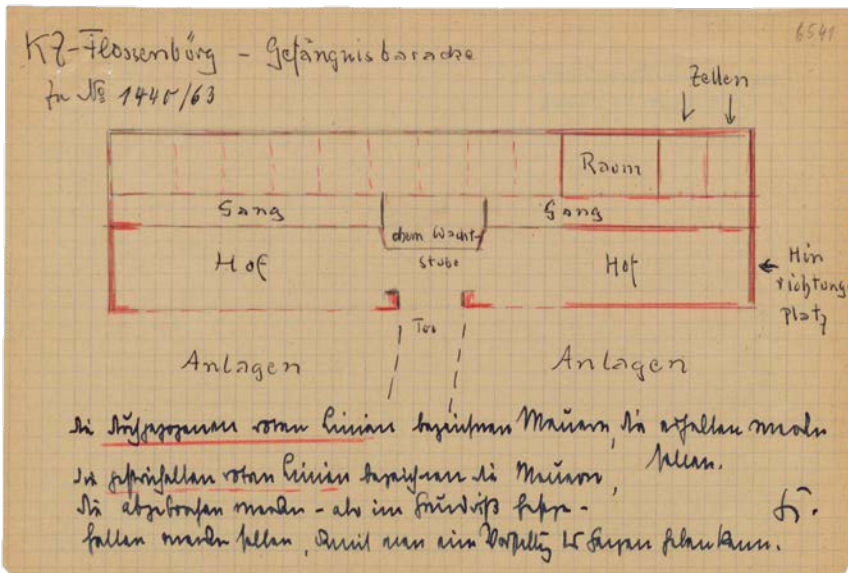 6541
KZ-Flossenbürg - Gefängnisbaracke
zu No 1440/63
Zellen
Raum
Gang
Gang
ehem Wacht-
stube
Hof
Hof
Hin
richtungs
platz
Tor
Anlagen
Anlagen
die durchgezogenen roten Linien bezeichnen Mauern, die erhalten werden
sollen.
die gestrichelten roten Linien bezeichnen die Mauern,
die abgebrochen werden - aber im Grundriß festge-
halten werden sollen, damit man eine Vorstellung des Ganzen haben kann.